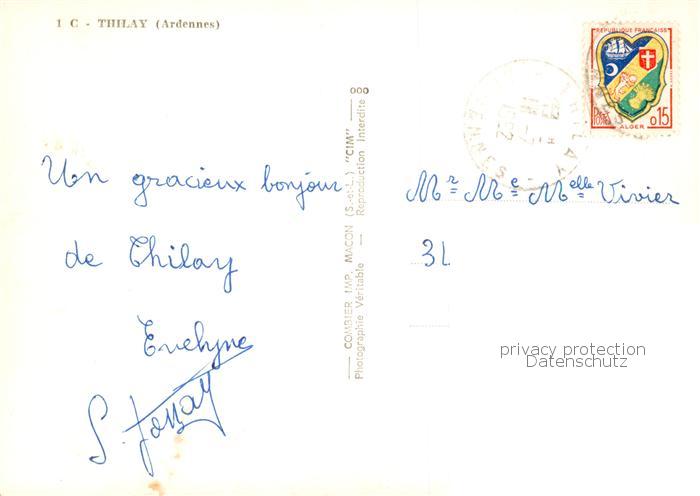 1 C - THILAY (Ardennes)
Un gracieux bonjour
de Thilay
Evelyne
COMBIER IMP. MACON (S.-et-L.) "CIM"
Photographie Véritable — Reproduction Interdite
REPUBLIQUE FRANÇAISE
POSTES
0,15
ALGER
THILAY
1962
Mr Me Melle Vivier
31
privacy protection
Datenschutz